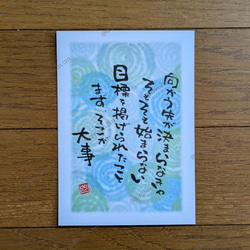 向かう先が決まらなきゃ
そもそも始まらない
目標を掲げられたこと
まず、そこが
大事